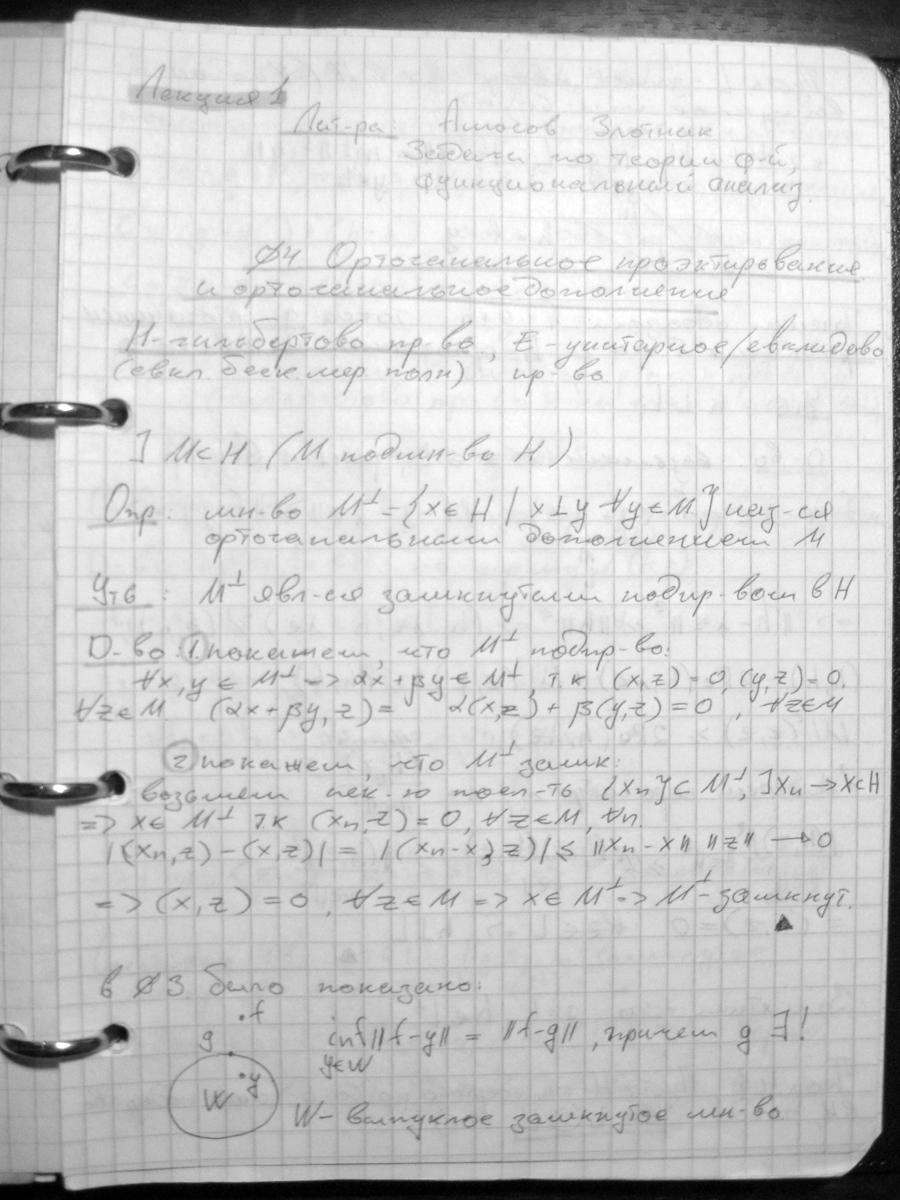 Лекция 1
Лит-ра: Амосов Злотник
Задачи по теории ф-й,
функциональный анализ.
§4. Ортоганальное проэктирование
и ортоганальное дополнение
H-гильбертово пр-во, E-унитарное/евклидово
(евкл. беск. мер. полн) пр-во.
∃ M⊂H (M подмн-во H)
Опр: мн-во M^⊥={x∈H | x⊥y ∀y∈M} наз-ся
ортоганальным дополнением M
Утв: M^⊥ явл-ся замкнутым подпр-вом в H
D-во: ① покажем, что M^⊥ подпр-во:
∀x,y ∈ M^⊥ => αx+βy ∈ M^⊥, т.к. (x,z)=0, (y,z)=0,
∀z∈M (αx+βy,z)= α(x,z)+β(y,z)=0, ∀z∈M
② покажем, что M^⊥ замк:
возьмем нек-ю посл-ть {xn}⊂M^⊥, ∃xn→x⊂H
=> x∈M^⊥ т.к (xn,z)=0, ∀z∈M, ∀n.
|(xn,z)-(x,z)| = |(xn-x,z)| ≤ ||xn-x|| ||z|| → 0
=> (x,z)=0, ∀z∈M => x∈M^⊥ => M^⊥-замкнут.
▲
в §3. было показано:
f
g inf||f-y|| = ||f-g||, причем g ∃!
y∈W
y
W
W-выпуклое замкнутое мн-во